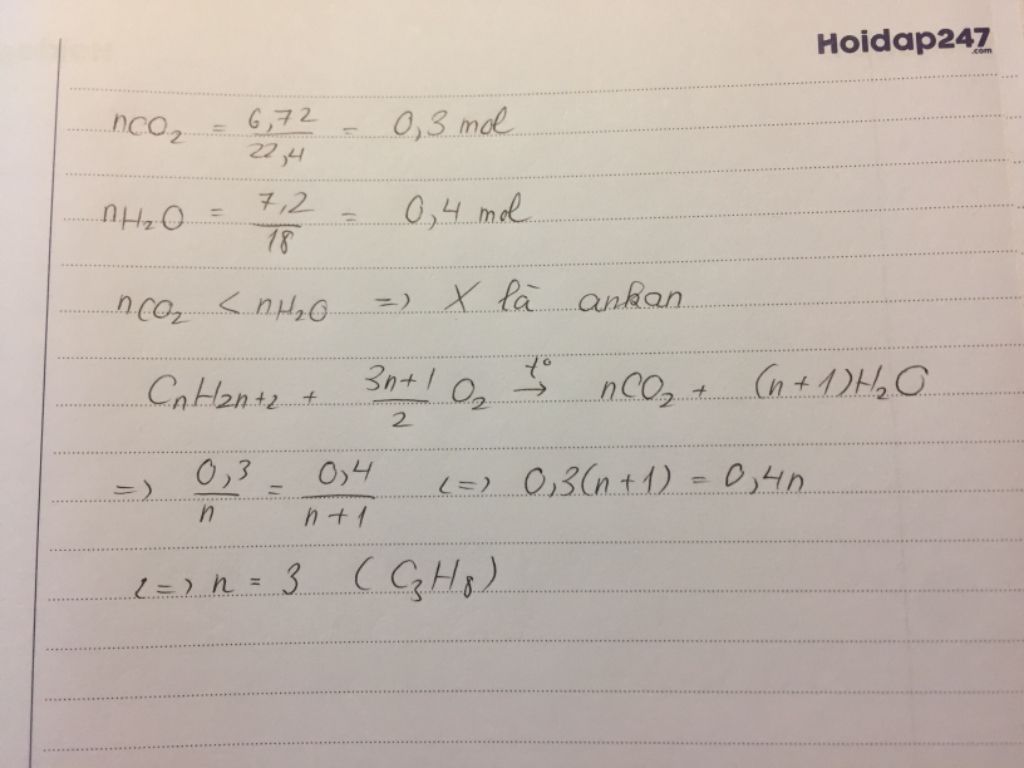 Hoidap247
.com
nCO₂ = 6,72/22,4 = 0,3 mol
nH₂O = 7,2/18 = 0,4 mol
nCO₂ < nH₂O => X là ankan
CnH2n+2 + 3n+1/2 O₂ t°→ nCO₂ + (n+1)H₂O
=> 0,3/n = 0,4/n+1 <=> 0,3(n+1) = 0,4n
<=> n = 3 (C₃H₈)